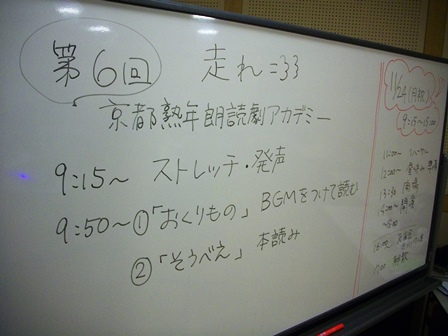 第6回 走れ=33
京都熟年朗読劇アカデミー
9:15~ ストレッチ・発声
9:50~ ①「おくりもの」 BGMをつけて読む
②「そうべえ」 本読み
11/24(月祝)
9:15~15:00
開場
開演